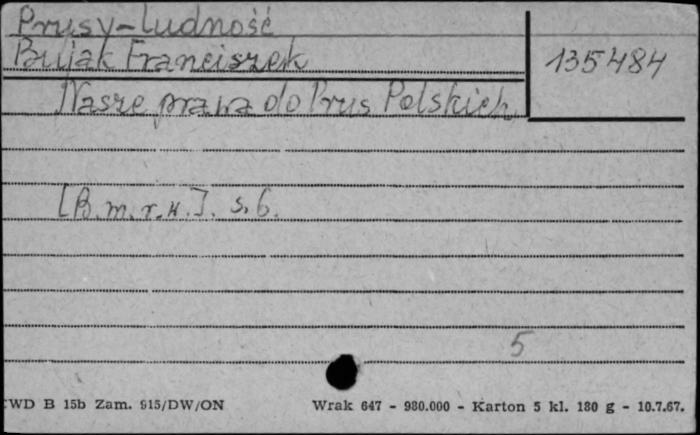 Prusy-ludność
Bujak Franciszek
135484
Nasze prawa do Prus Polskich
[B.m.r.w.]. s. 6.
5
CWD B 15b Zam. 915/DW/ON
Wrak 647 - 980.000 - Karton 5 kl. 180 g - 10.7.67.